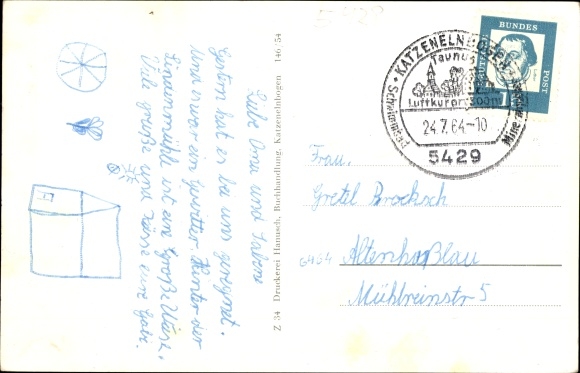 Liebe Oma und Sabine
Gestern hat es bei uns geregnet.
Und immer ein Gewitter Hinter der
ist eine große Wiese.
Viele grüße und Küsse eure Gabi.
Z 34 Druckerei Hanusch, Buchhandlung, Katzenelnbogen 146 54
KATZENELNBOGEN
Taunus
Luftkurort 300m
24.7.64-10
5429
DEUTSCHE
BUNDES
POST
Frau,
Gretel Brocksch
6464 Altenhaßlau
Mühlreinstr 5